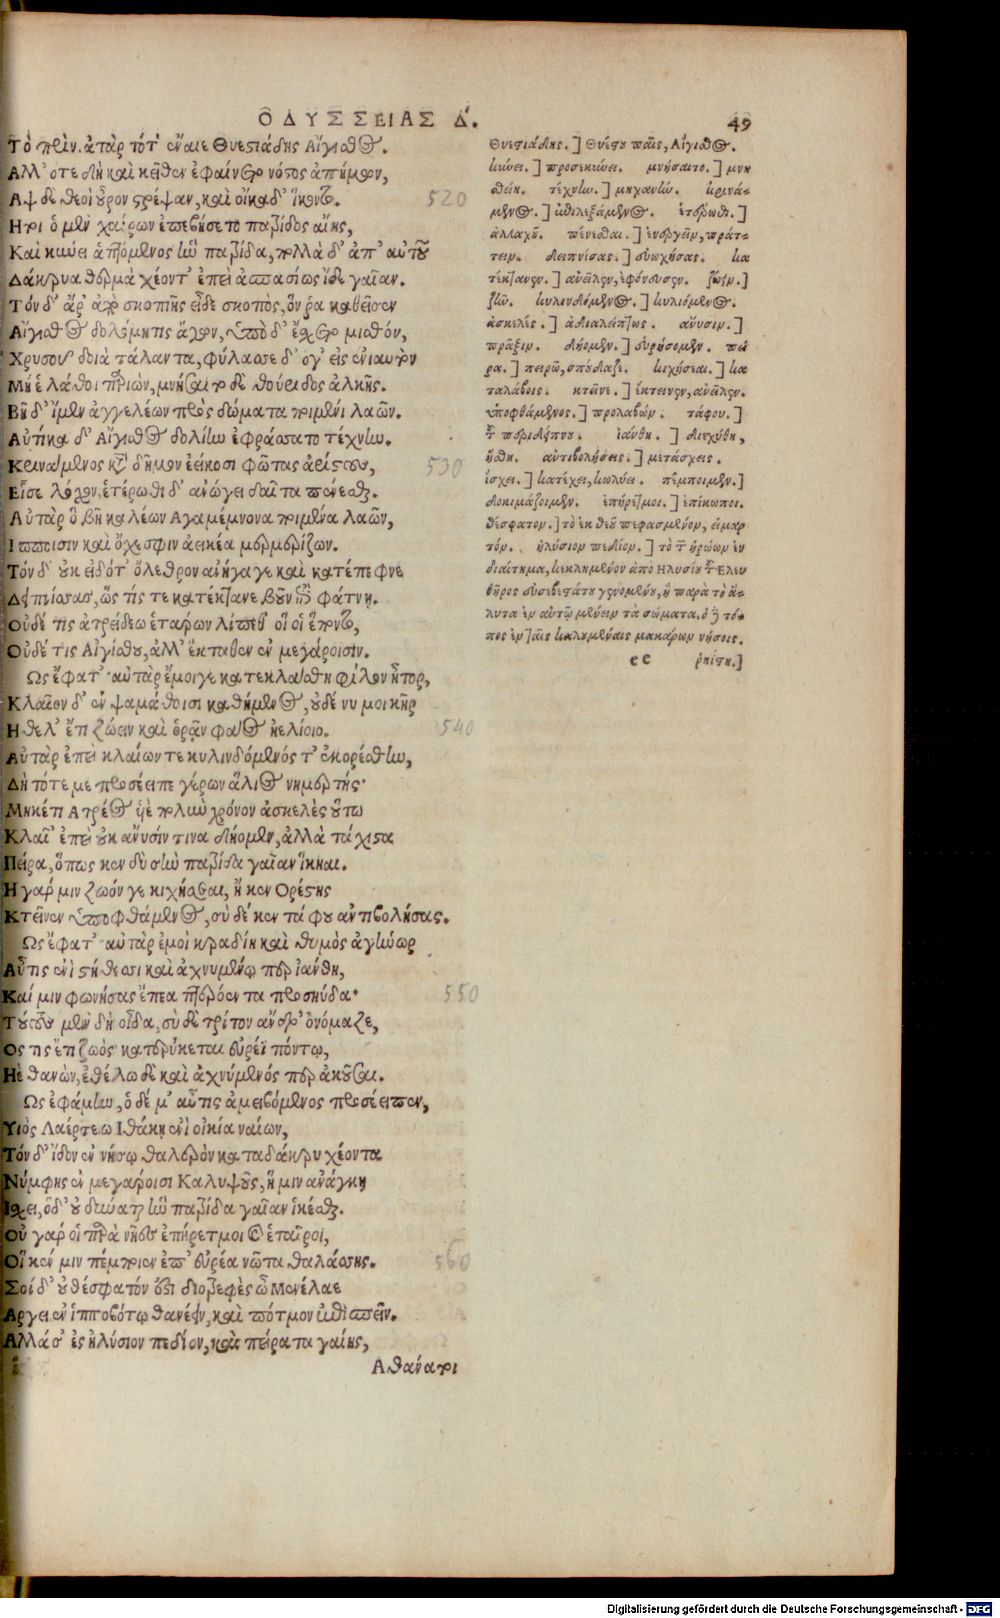 ΟΔΥΣΣΕΙΑΣ Δ.
49
Τὸ πρὶν. ἀτὰρ τότ' ἔναιε Θυεστιάδης Αἴγισθος.
Αλλ' ὅτε δὴ καὶ κεῖθεν ἐφαίνετο νόστος ἀπήμων,
Αψ δὲ θεοὶ οὖρον στρέψαν, καὶ οἴκαδ' ἵκοντο.
520
Ητοι ὁ μὲν χαίρων ἐπεβήσετο πατρίδος αἴης,
Καὶ κύνει ἁπτόμενος ἣν πατρίδα, πολλὰ δ' ἀπ' αὐτοῦ
Δάκρυα θερμὰ χέοντ' ἐπεὶ ἀσπασίως ἴδε γαῖαν.
Τόν δ' ἄρ' ἀπὸ σκοπῆς εἶδε σκοπὸς, ὅν ῥα καθεῖσεν
Αἴγισθος δολόμητις ἄγων, ὑπὸ δ' ἔσχετο μισθόν,
Χρυσοῦ δοιὰ τάλαντα, φύλασσε δ' ὅγ' εἰς ἐνιαυτὸν
Μή ἑ λάθοι παριών, μνήσαιτο δὲ θούριδος ἀλκῆς.
Βῆ δ' ἴμεν ἀγγελέων πρὸς δώματα ποιμένι λαῶν.
Αὐτίκα δ' Αἴγισθος δολίην ἐφράσσατο τέχνην.
Κρινάμενος κατὰ δῆμον ἐείκοσι φῶτας ἀρίστους,
530
Εἷσε λόχον, ἑτέρωθι δ' ἀνώγει δαῖτα πένεσθαι.
Αὐτὰρ ὁ βῆ καλέων Αγαμέμνονα ποιμένα λαῶν,
Ιπποισιν καὶ ὄχεσφιν ἀεικέα μερμερίζων.
Τόν δ' οὐκ εἰδότ' ὄλεθρον ἀνήγαγε καὶ κατέπεφνε
Δειπνίσσας, ὥς τίς τε κατέκτανε βοῦν ἐπὶ φάτνῃ.
Οὐδέ τις ἀτρείδεω ἑτάρων λίπεθ' οἵ οἱ ἕποντο,
Οὐδέ τις Αἰγίσθου, ἀλλ' ἔκταθεν ἐν μεγάροισιν.
Ως ἔφατ' αὐτὰρ ἔμοιγε κατεκλάσθη φίλον ἦτορ,
Κλαῖον δ' ἐν ψαμάθοισι καθήμενος, οὐδέ νύ μοι κῆρ
Ηθελ' ἔτι ζώειν καὶ ὁρᾶν φάος ἠελίοιο.
540
Αὐτὰρ ἐπεὶ κλαίων τε κυλινδόμενός τ' ἐκορέσθην,
Δὴ τότε με προσέειπε γέρων ἅλιος νημερτής·
Μηκέτι Ατρέος υἱὲ πολὺν χρόνον ἀσκελὲς οὕτω
Κλαῖ' ἐπεὶ οὐκ ἄνυσίν τινα δήομεν, ἀλλὰ τάχιστα
Πείρα, ὅπως κεν δὴ σὴν πατρίδα γαῖαν ἵκηαι.
Η γάρ μιν ζωόν γε κιχήσεαι, ἤ κεν Ορέστης
Κτεῖνεν ὑποφθάμενος, σὺ δέ κεν τάφου ἀντιβολήσας.
Ως ἔφατ' αὐτὰρ ἐμοὶ κραδίη καὶ θυμὸς ἀγήνωρ
Αὖτις ἐνὶ στήθεσσι καὶ ἀχνυμένῳ περ ἰάνθη,
Καί μιν φωνήσας ἔπεα πτερόεντα προσηύδα·
550
Τούτους μὲν δὴ οἶδα, σὺ δὲ τρίτον ἄνδρ' ὀνόμαζε,
Ος τις ἔτι ζωὸς κατερύκεται εὐρέϊ πόντῳ,
Ηὲ θανὼν, ἐθέλω δὲ καὶ ἀχνύμενός περ ἀκοῦσαι.
Ως ἐφάμην, ὁ δέ μ' αὖτις ἀμειβόμενος προσέειπεν,
Υιὸς Λαέρτεω Ιθάκῃ ἐνὶ οἰκία ναίων,
Τόν δ' ἴδον ἐν νήσῳ θαλερὸν κατὰ δάκρυ χέοντα
Νύμφης ἐν μεγάροισι Καλυψοῦς, ἥ μιν ἀνάγκῃ
Ισχει, ὅδ' οὐ δύναται ἣν πατρίδα γαῖαν ἱκέσθαι.
Οὐ γάρ οἱ πάρα νῆες ἐπήρετμοι καὶ ἑταῖροι,
Οἵ κέν μιν πέμποιεν ἐπ' εὐρέα νῶτα θαλάσσης.
560
Σοὶ δ' οὐ θέσφατόν ἐστι διοτρεφὲς ὦ Μενέλαε
Αργει ἐν ἱπποβότῳ θανέειν, καὶ πότμον ἐπισπεῖν.
Αλλά σ' ἐς ἠλύσιον πεδίον, καὶ πείρατα γαίης,
Αθάνατοι
Θυεστιάδης.] Θυέστου παῖς, Αἴγισθος.
κύνει.] προσεκύνει. μνήσαιτο.] μνη
σθείη. τέχνην.] μηχανήν. κρινά-
μενος.] ἐπιλεξάμενος. ἑτέρωθι.]
ἀλλαχοῦ. πένεσθαι.] ἐνεργεῖν, πράτ-
τειν. δειπνίσας.] εὐωχήσας. κα
τέκτανεν.] ἀνεῖλεν, ἐφόνευσεν. ζώειν.]
ζῆν. κυλινδόμενος.] κυλιόμενος.
ἀσκελές.] ἀδιαλείπτως. ἄνυσιν.]
πρᾶξιν. δήομεν.] εὑρήσομεν. πεί
ρα.] πειρῶ, σπούδαζε. κιχήσεαι.] κα
ταλάβοις. κτεῖνε.] ἔκτεινεν, ἀνεῖλεν.
ὑποφθάμενος.] προλαβών. τάφου.]
τοῦ περιδείπνου. ἰάνθη.] διεχύθη,
ἥσθη. ἀντιβολήσεις.] μετάσχεις.
ἴσχει.] κατέχει, κωλύει. πέμποιμεν.]
δοκιμάζοιμεν. ἐπήρετμοι.] ἐπίκωποι.
θέσφατον.] τὸ ἐκ θεοῦ πεφασμένον, εἱμαρ
τόν. ἠλύσιον πεδίον.] τὸ τῶν ἡρώων ἐν
διαίτημα, κεκλημένον ἀπὸ Ηλυσίου τοῦ Ελευ
θῆρος εὐσεβεστάτου γενομένου, ἢ παρὰ τὸ ἄ-
λυτα ἐν αὐτῷ μένειν τὰ σώματα. ὁ δὲ τό-
πος ἐν ταῖς καλουμέναις μακάρων νήσοις.
ee ῥηΐστη.]
Digitalisierung gefördert durch die Deutsche Forschungsgemeinschaft - DFG